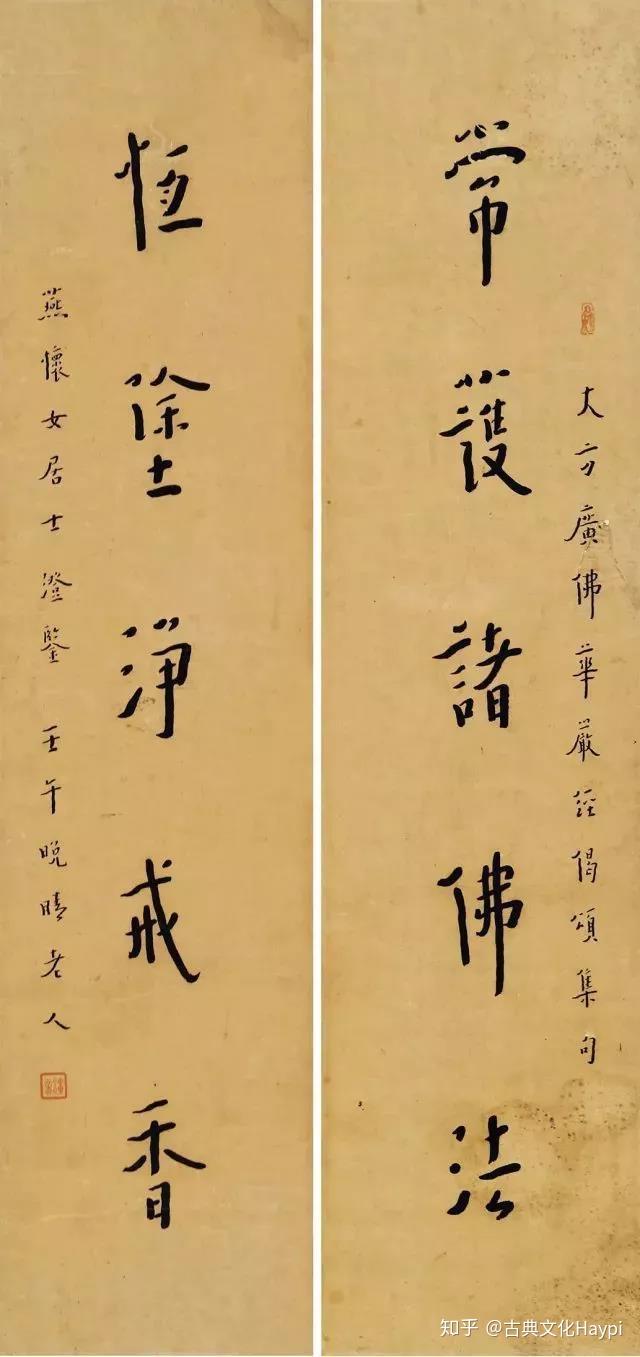 常護諸佛法
大方廣佛華嚴經偈頌集句
恒塗淨戒香
燕懷女居士澄鑒 壬午晚晴老人
知乎 @古典文化Haypi